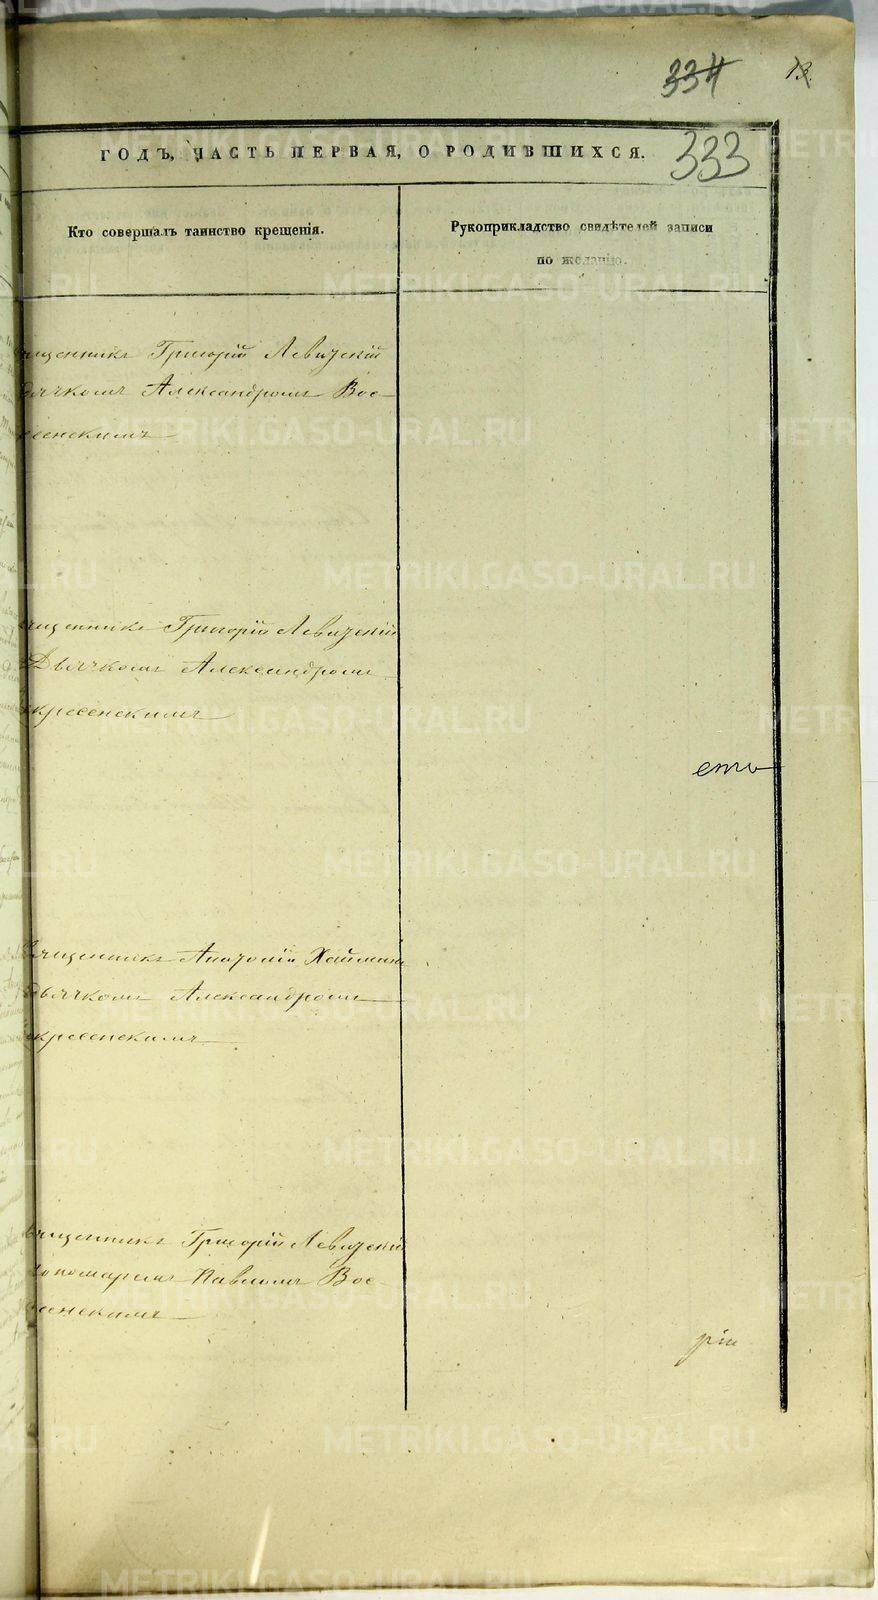 334 13.
ГОДЪ, ЧАСТЬ ПЕРВАЯ, О РОДИВШИХСЯ. 333
Кто совершалъ таинство крещенія.
Рукоприкладство свидѣтелей записи
по желанію.
щенникъ Григорій Левицкій
дьячкомъ Александромъ Вос-
сенскимъ
щенникъ Григорій Левицкій
Дьячкомъ Александромъ
кресенскимъ
ств
щенникъ Анатолій
дьячкомъ Александромъ
кресенскимъ
щенникъ Григорій Левицкій
пономаремъ Павломъ Вос-
сенскимъ
ріи
METRIKI.GASO-URAL.RU